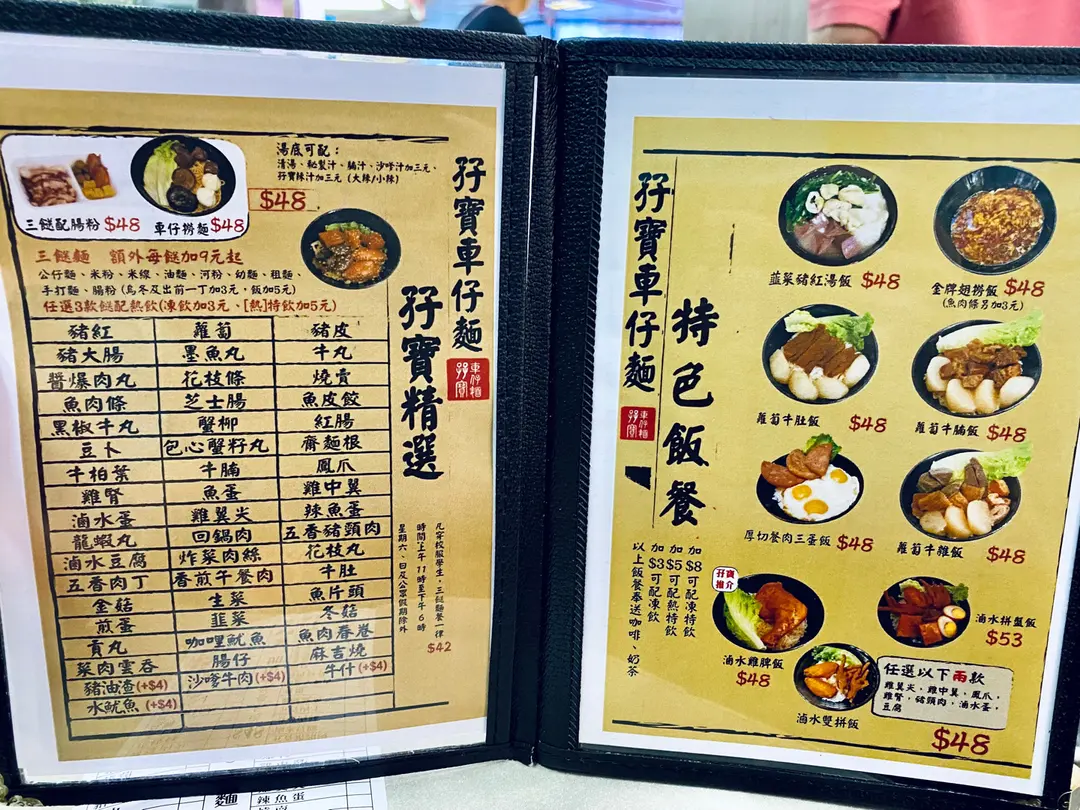 湯底可配：
清湯、秘製汁、腩汁、沙嗲汁加三元、
孖寶辣汁加三元（大辣/小辣）
三餸配腸粉 $48
車仔撈麵 $48
$48
三餸麵 額外每餸加9元起
公仔麵、米粉、米線、油麵、河粉、幼麵、粗麵、
手打麵、腸粉（烏冬及出前一丁加3元，飯加5元）
任選3款餸配熱飲（凍飲加3元、[熱]特飲加5元）
豬紅 蘿蔔 豬皮
豬大腸 墨魚丸 牛丸
醬爆肉丸 花枝條 燒賣
魚肉條 芝士腸 魚皮餃
黑椒牛丸 蟹柳 紅腸
豆卜 包心蟹籽丸 齋麵根
牛柏葉 牛腩 鳳爪
雞腎 魚蛋 雞中翼
滷水蛋 雞翼尖 辣魚蛋
龍蝦丸 回鍋肉 五香豬頸肉
滷水豆腐 炸菜肉絲 花枝丸
五香肉丁 香煎午餐肉 牛肚
金菇 生菜 魚片頭
煎蛋 韮菜 冬菇
貢丸 咖哩魷魚 魚肉春卷
菜肉雲吞 腸仔 麻吉燒
豬油渣(+$4) 沙嗲牛肉(+$4) 牛什(+$4)
水魷魚(+$4)
孖寶車仔麵
孖寶
車仔麵
孖寶精選
凡穿校服學生，三餸麵餐一律
$42
時間上午11時至下午6時
星期六、日及公眾假期除外
孖寶車仔麵
孖寶
車仔麵
特色飯餐
加$8可配凍特飲
加$5可配熱特飲
加$3可配凍飲
以上飯餐奉送咖啡、奶茶
韮菜豬紅湯飯 $48
金牌翅撈飯 $48
（魚肉條另加3元）
蘿蔔牛肚飯 $48
蘿蔔牛腩飯 $48
厚切餐肉三蛋飯 $48
蘿蔔牛雜飯 $48
孖寶
推介
滷水雞脾飯
$48
滷水拼盤飯
$53
滷水雙拼飯
任選以下兩款
雞翼尖，雞中翼，鳳爪，
雞腎，豬頸肉，滷水蛋，
豆腐
$48
麵
辣魚蛋